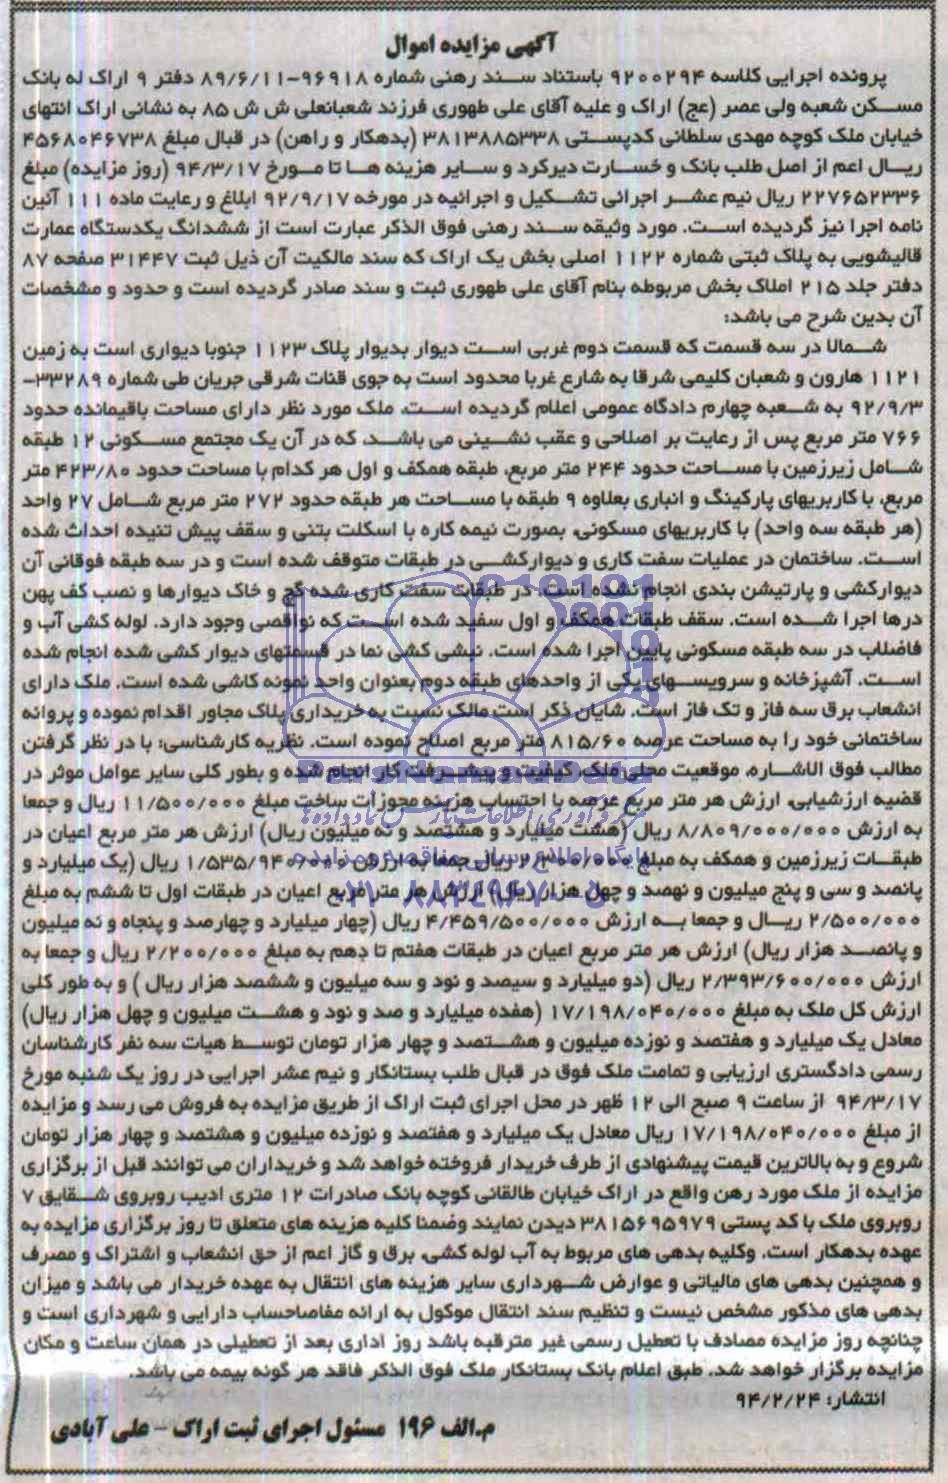 آگهی مزایده اموال
پرونده اجرایی کلاسه ۹۲۰۰۲۹۴ باستناد سند رهنی شماره ۹۶۹۱۸-۸۹/۶/۱۱ دفتر ۹ اراک له بانک
مسکن شعبه ولی عصر (عج) اراک و علیه آقای علی طهوری فرزند شعبانعلی ش ش ۸۵ به نشانی اراک انتهای
خیابان ملک کوچه مهدی سلطانی کدپستی ۳۸۱۳۸۸۵۳۳۸ (بدهکار و راهن) در قبال مبلغ ۴۵۶۸۰۴۶۷۳۸
ریال اعم از اصل طلب بانک و خسارت دیرکرد و سایر هزینه ها تا مورخ ۹۴/۳/۱۷ (روز مزایده) مبلغ
۲۲۷۶۵۲۳۳۶ ریال نیم عشر اجرائی تشکیل و اجرائیه در مورخه ۹۲/۹/۱۷ ابلاغ و رعایت ماده ۱۱۱ آئین
نامه اجرا نیز گردیده است. مورد وثیقه سند رهنی فوق الذکر عبارت است از ششدانگ یکدستگاه عمارت
قالیشویی به پلاک ثبتی شماره ۱۱۲۲ اصلی بخش یک اراک که سند مالکیت آن ذیل ثبت ۳۱۴۴۷ صفحه ۸۷
دفتر جلد ۲۱۵ املاک بخش مربوطه بنام آقای علی طهوری ثبت و سند صادر گردیده است و حدود و مشخصات
آن بدین شرح می باشد:
شمالا در سه قسمت که قسمت دوم غربی است دیوار بدیوار پلاک ۱۱۲۳ جنوبا دیواری است به زمین
۱۱۲۱ هارون و شعبان کلیمی شرقا به شارع غربا محدود است به جوی قنات شرقی جریان طی شماره ۳۳۲۸۹-
۹۲/۹/۳ به شعبه چهارم دادگاه عمومی اعلام گردیده است. ملک مورد نظر دارای مساحت باقیمانده حدود
۷۶۶ متر مربع پس از رعایت بر اصلاحی و عقب نشینی می باشد. که در آن یک مجتمع مسکونی ۱۲ طبقه
شامل زیرزمین با مساحت حدود ۲۴۴ متر مربع، طبقه همکف و اول هر کدام با مساحت حدود ۴۲۳/۸۰ متر
مربع، با کاربریهای پارکینگ و انباری بعلاوه ۹ طبقه با مساحت هر طبقه حدود ۲۷۲ متر مربع شامل ۲۷ واحد
(هر طبقه سه واحد) با کاربریهای مسکونی، بصورت نیمه کاره با اسکلت بتنی و سقف پیش تنیده احداث شده
است. ساختمان در عملیات سفت کاری و دیوارکشی در طبقات متوقف شده است و در سه طبقه فوقانی آن
دیوارکشی و پارتیشن بندی انجام نشده است. در طبقات سفت کاری شده گچ و خاک دیوارها و نصب کف پهن
درها اجرا شده است. سقف طبقات همکف و اول سفید شده است که نواقصی وجود دارد. لوله کشی آب و
فاضلاب در سه طبقه مسکونی پایین اجرا شده است. نبشی کشی نما در قسمتهای دیوار کشی شده انجام شده
است. آشپزخانه و سرویسهای یکی از واحدهای طبقه دوم بعنوان واحد نمونه کاشی شده است. ملک دارای
انشعاب برق سه فاز و تک فاز است. شایان ذکر است مالک نسبت به خریداری پلاک مجاور اقدام نموده و پروانه
ساختمانی خود را به مساحت عرصه ۸۱۵/۶۰ متر مربع اصلاح نموده است. نظریه کارشناسی: با در نظر گرفتن
مطالب فوق الاشاره، موقعیت محلی ملک، کیفیت و پیشرفت کار انجام شده و بطور کلی سایر عوامل موثر در
قضیه ارزشیابی، ارزش هر متر مربع عرصه با احتساب هزینه مجوزات ساخت مبلغ ۱۱/۵۰۰/۰۰۰ ریال و جمعا
به ارزش ۸/۸۰۹/۰۰۰/۰۰۰ ریال (هشت میلیارد و هشتصد و نه میلیون ریال) ارزش هر متر مربع اعیان در
طبقات زیرزمین و همکف به مبلغ ۲/۳۰۰/۰۰۰ ریال جمعا به ارزش ۱/۵۳۵/۹۴۰/۰۰۰ ریال (یک میلیارد و
پانصد و سی و پنج میلیون و نهصد و چهل هزار ریال) ارزش هر متر مربع اعیان در طبقات اول تا ششم به مبلغ
۲/۵۰۰/۰۰۰ ریال و جمعا به ارزش ۴/۴۵۹/۵۰۰/۰۰۰ ریال (چهار میلیارد و چهارصد و پنجاه و نه میلیون
و پانصد هزار ریال) ارزش هر متر مربع اعیان در طبقات هفتم تا دهم به مبلغ ۲/۲۰۰/۰۰۰ ریال و جمعا به
ارزش ۲/۳۹۳/۶۰۰/۰۰۰ ریال (دو میلیارد و سیصد و نود و سه میلیون و ششصد هزار ریال ) و به طور کلی
ارزش کل ملک به مبلغ ۱۷/۱۹۸/۰۴۰/۰۰۰ (هفده میلیارد و صد و نود و هشت میلیون و چهل هزار ریال)
معادل یک میلیارد و هفتصد و نوزده میلیون و هشتصد و چهار هزار تومان توسط هیات سه نفر کارشناسان
رسمی دادگستری ارزیابی و تمامت ملک فوق در قبال طلب بستانکار و نیم عشر اجرایی در روز یک شنبه مورخ
۹۴/۳/۱۷ از ساعت ۹ صبح الی ۱۲ ظهر در محل اجرای ثبت اراک از طریق مزایده به فروش می رسد و مزایده
از مبلغ ۱۷/۱۹۸/۰۴۰/۰۰۰ ریال معادل یک میلیارد و هفتصد و نوزده میلیون و هشتصد و چهار هزار تومان
شروع و به بالاترین قیمت پیشنهادی از طرف خریدار فروخته خواهد شد و خریداران می توانند قبل از برگزاری
مزایده از ملک مورد رهن واقع در اراک خیابان طالقانی کوچه بانک صادرات ۱۲ متری ادیب روبروی شقایق ۷
روبروی ملک با کد پستی ۳۸۱۵۶۹۵۹۷۹ دیدن نمایند وضمنا کلیه هزینه های متعلق تا روز برگزاری مزایده به
عهده بدهکار است. وکلیه بدهی های مربوط به آب لوله کشی، برق و گاز اعم از حق انشعاب و اشتراک و مصرف
و همچنین بدهی های مالیاتی و عوارض شهرداری سایر هزینه های انتقال به عهده خریدار می باشد و میزان
بدهی های مذکور مشخص نیست و تنظیم سند انتقال موکول به ارائه مفاصاحساب دارایی و شهرداری است و
چنانچه روز مزایده مصادف با تعطیل رسمی غیر مترقبه باشد روز اداری بعد از تعطیلی در همان ساعت و مکان
مزایده برگزار خواهد شد. طبق اعلام بانک بستانکار ملک فوق الذکر فاقد هر گونه بیمه می باشد.
انتشار: ۹۴/۲/۲۴
م.الف ۱۹۶ مسئول اجرای ثبت اراک - علی آبادی